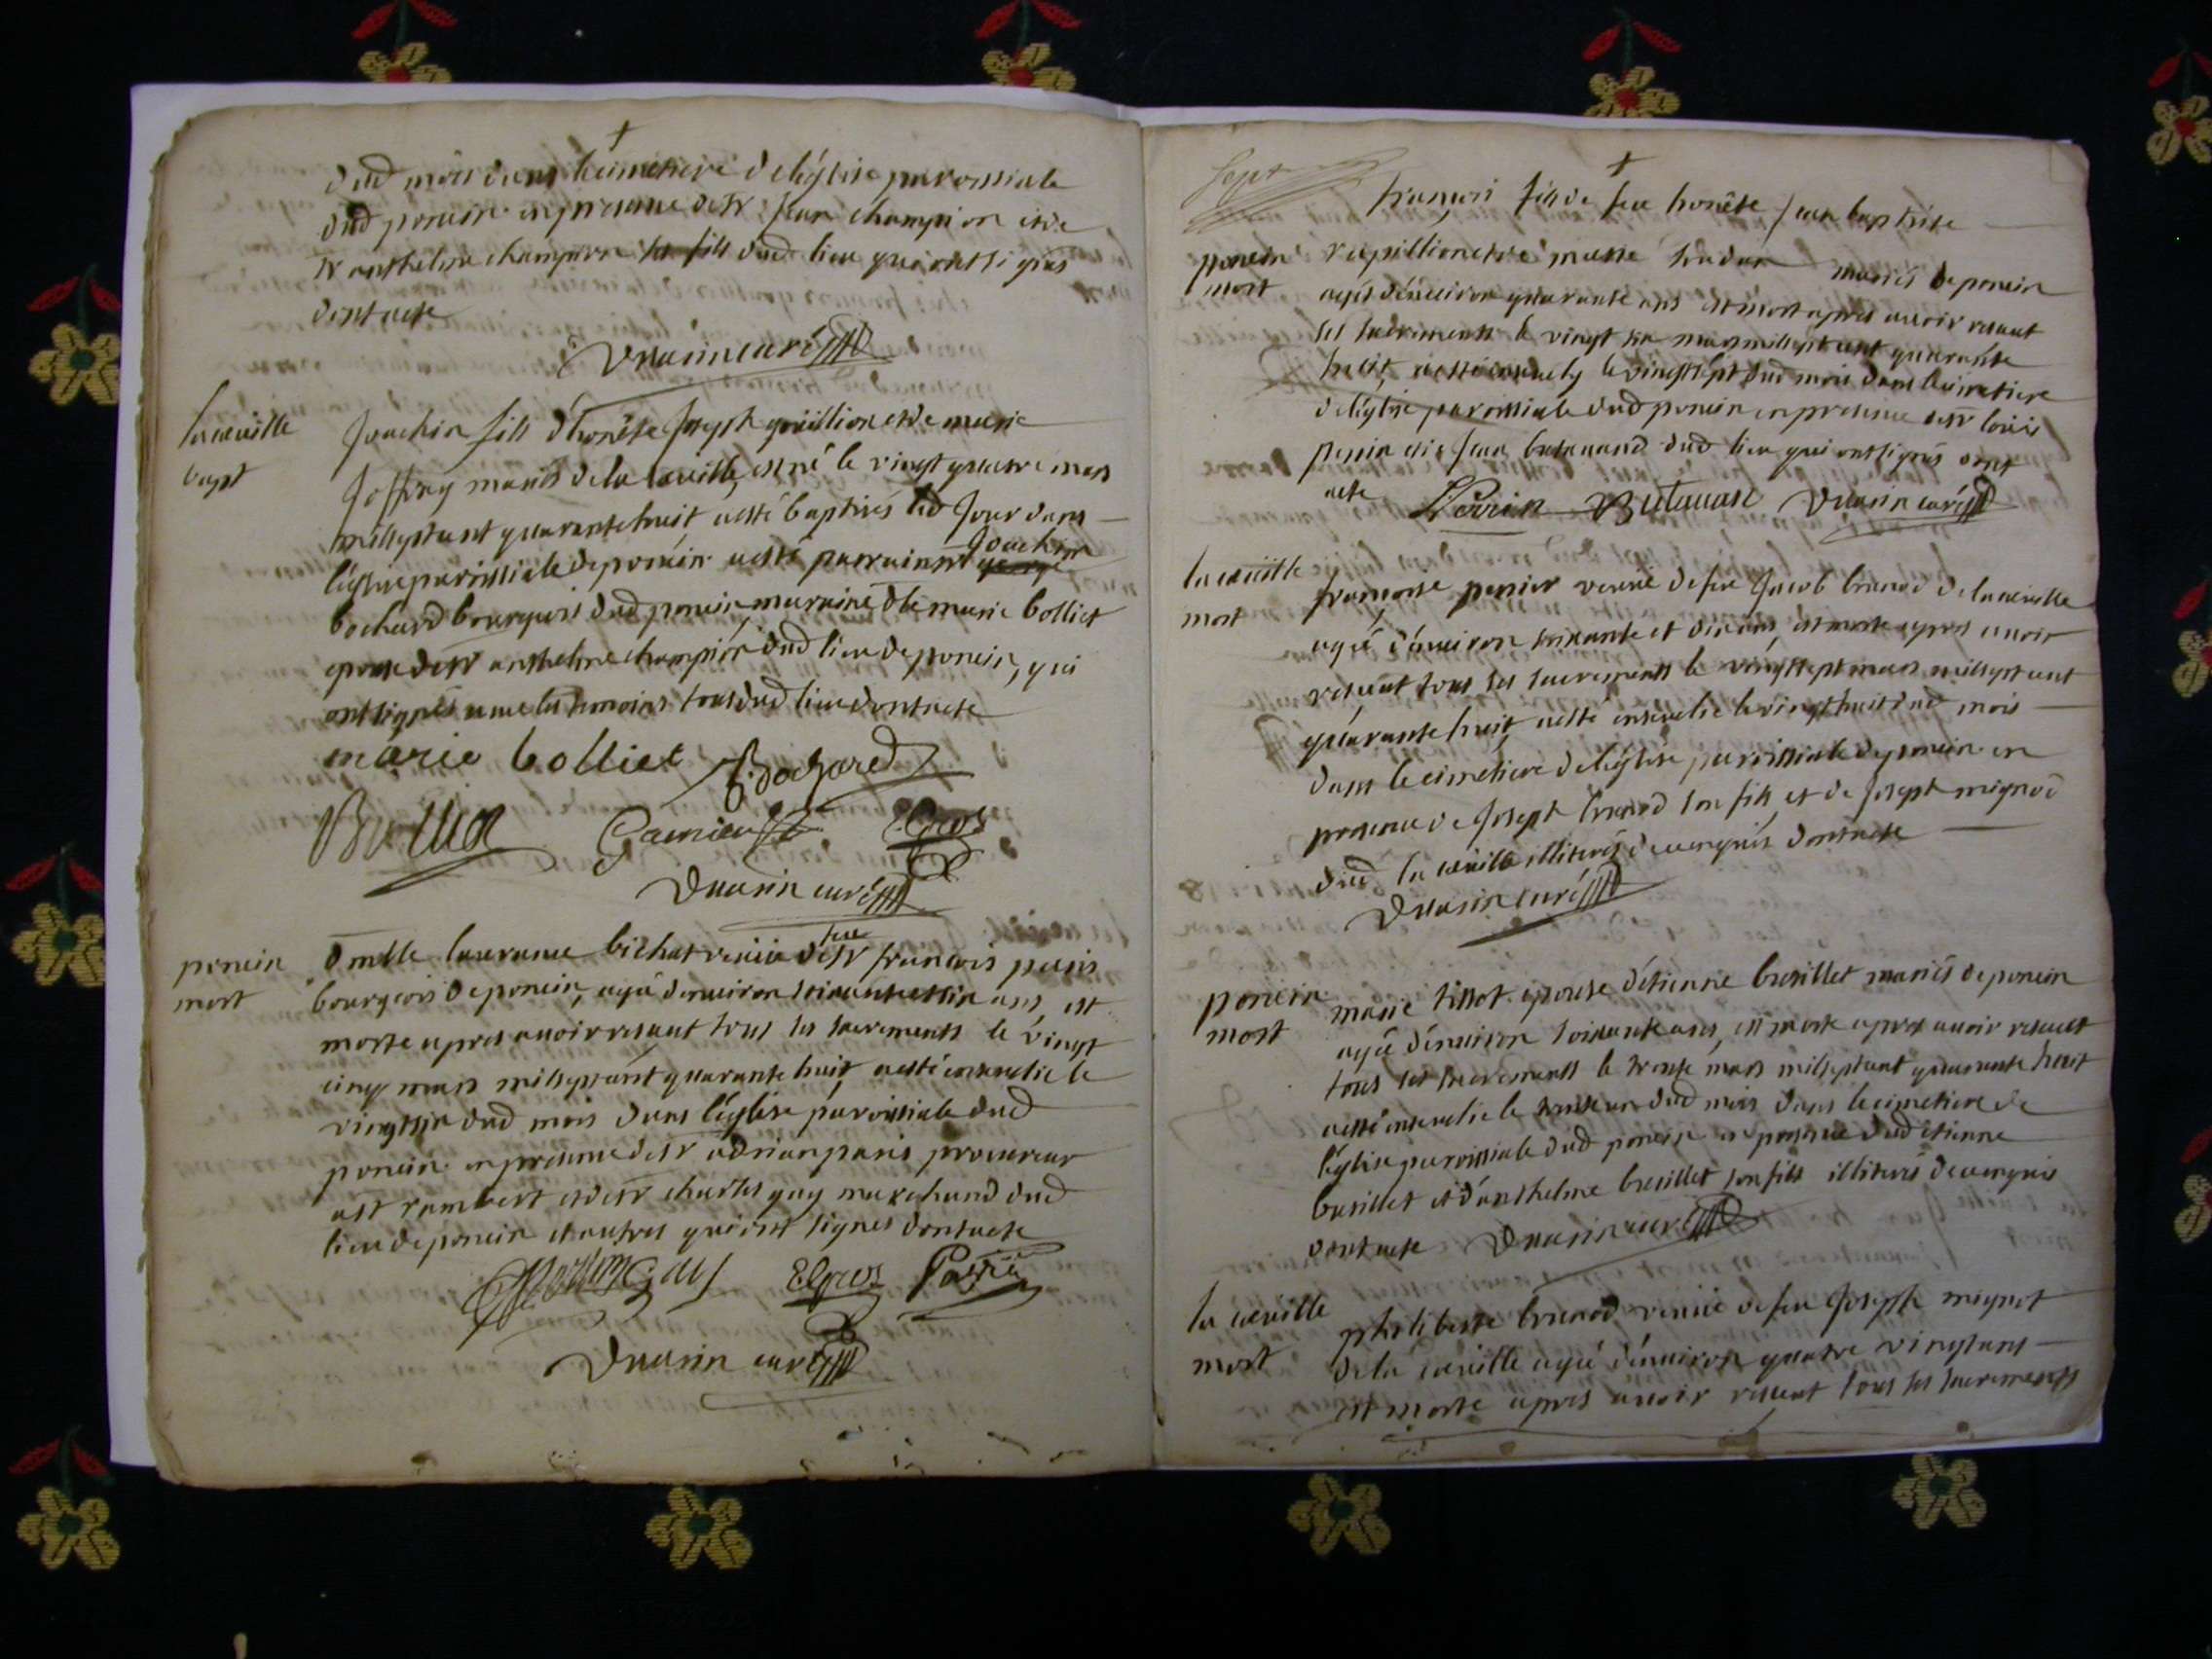 dud mois dans le cimetiere de léglise paroissiale
dud poncin en presence de sr jean champion et de
sr anthelme champion son fils dud lieu qui ont signés
dont acte
curé
la cueille
bapt
Joachin fils d'honête joseph et de marie
Joffray mariés de la cueille, est né le vingt quatre mars
mil sept cent quarante huit, a esté baptisés led jour dans
léglise paroissiale de poncin a esté parrain sr Joachim
bochard bourgeois dud poncin, maraine dlle marie bolliet
epouse de sr anthelme champion dud lieu de poncin, qui
ont signés avec les temoins tous dud lieu dont acte
marie bolliet Bochard
EGros
curé
poncin
mort
dmlle laurance bichat veuve de feu sr francois paris
bourgeois de poncin, agée d'environ soixante et six ans, est
morte apres avoir receut tous ses sacrements le vingt
cinq mars mil sept cent quarante huit, a esté ensevelie le
vingt six dud mois dans léglise paroissiale dud
poncin en presence de sr adrian paris procureur
a st rambert et de sr charles guy marchand dud
lieu de poncin et autres qui ont signés dont acte
EGros
curé
Sept
poncin
mort
francois fils de feu honête jean baptiste
et de marie mariés de poncin
agés d'environ quarante ans est mort apres avoir receut
ses sacrements le vingt six mars mil sept cent quarante
huit, a esté ensevely le vingt sept dud mois dans le cimetiere
de léglise paroissiale dud poncin en presence de sr loüis
perrin et de jean dud lieu qui ont signés dont
acte Perrin curé
la cueille
mort
francoise veuve de feu Jacob brunod de la cueille
agée d'environ soixante et dix ans, est morte apres avoir
receut tous ses sacrements le vingt sept mars mil sept cent
quarante huit, a esté ensevelie le vingt huit dud mois
dans le cimetiere de léglise paroissiale de poncin en
presence de Joseph brunod son fils et de Joseph mignod
dud la cueille illiterés de ce enquis dont acte
curé
poncin
mort
marie tissot epouse d'étienne bresillet mariés de poncin
agée d'environ soixante ans, est morte apres avoir receut
tous ses sacrements le trente mars mil sept cent quarante huit
a esté ensevelie le trente un dud mois dans le cimetiere de
léglise paroissiale dud poncin en presence dud étienne
bresillet et d'anthelme bresillet son fils illiterés de ce enquis
dont acte curé
la cueille
mort
philiberte brunod veuve de feu Joseph mignot
de la cueille agée d'environ quatre vingt ans
est morte apres avoir receut tous ses sacrements